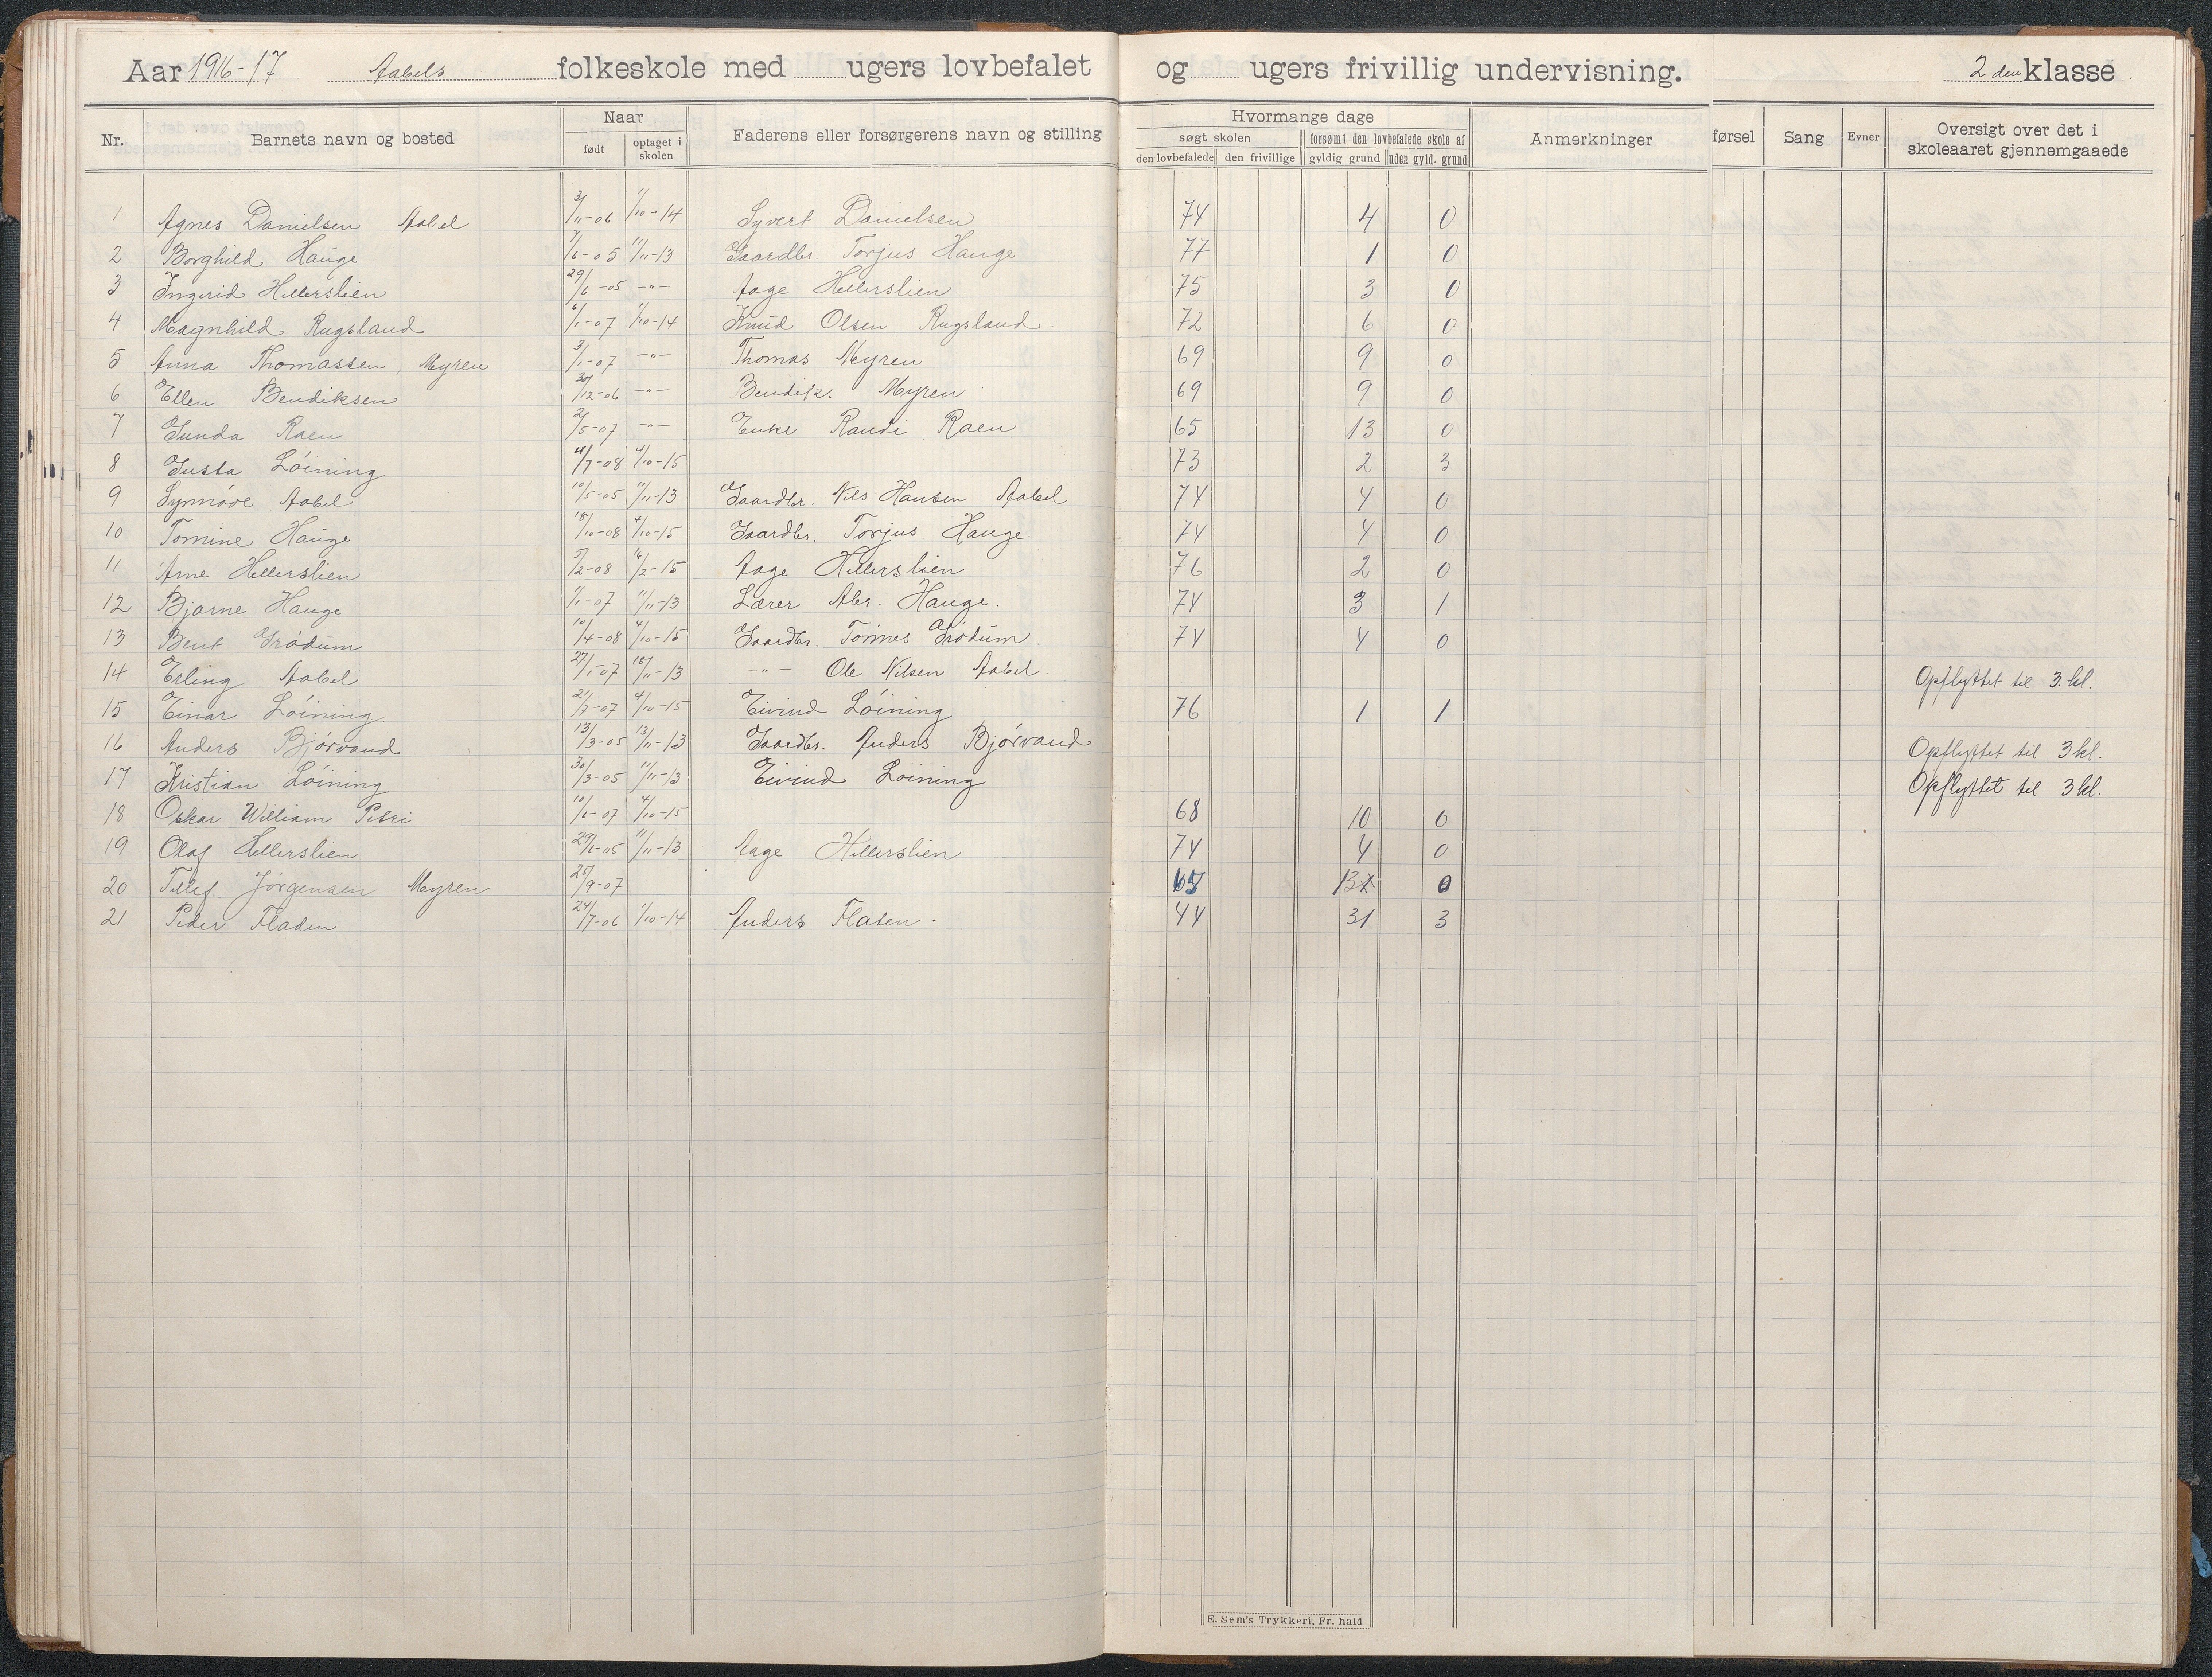 Aar 1916-17 Aabels folkeskole med ugers lovbefalet og ugers frivillig undervisning. 2den klasse.
Nr. Barnets navn og bosted Naar født optaget i skolen Faderens eller forsørgerens navn og stilling Hvormange dage søgt skolen den lovbefalede den frivillige forsømt den lovbefalede skole af gyldig grund uden gyld. grund Anmerkninger førsel Sang Evner Oversigt over det i skoleaaret gjennemgaaede
1 Agnes Danielsen Aabel 3/11-06 1/10-14 Syvert Danielsen 74 4 0
2 Borghild Hauge 7/6-05 11/11-13 Gaardbr. Torjus Hauge 77 1 0
3 Ingerid Hellerslien 29/6-05 -"- Aage Hellerslien 75 3 0
4 Magnhild Rugsland 6/1-07 1/10-14 Knud Olsen Rugsland. 72 6 0
5 Anna Thomassen, Myren 3/1-07 -"- Thomas Myren 69 9 0
6 Ellen Bendiksen 30/12-06 -"- Bendik. Myren 69 9 0
7 Gunda Raen 2/5-07 -"- Enke Randi Raen 65 13 0
8 Gusta Løining 4/7-08 4/10-15 73 2 3
9 Synnøve Aabel 10/5-05 11/11-13 Gaardbr. Nils Hansen Aabel 74 4 0
10 Tomine Hauge 18/10-08 4/10-15 Gaardbr. Torjus Hauge. 74 4 0
11 Arne Hellerslien 5/2-08 16/2-15 Aage Hellerslien 76 2 0
12 Bjarne Hauge 1/1-07 11/11-13 Lærer Abr. Hauge. 74 3 1
13 Bent Grødum 10/4-08 4/10-15 Gaardbr. Tønnes Grødum. 74 4 0
14 Erling Aabel 27/1-07 18/11-13 -"- Ole Nilsen Aabel. Opflyttet til 3. kl.
15 Einar Løining. 21/7-07 4/10-15 Eivind Løining 76 1 1
16 Anders Bjørvand 13/3-05 13/11-13 Gaardbr. Anders Bjørvand Opflyttet til 3 kl.
17 Kristian Løining 30/3-05 11/11-13 Eivind Løining Opflyttet til 3 kl.
18 Oskar William Petri 10/1-07 4/10-15 68 10 0
19 Olaf Hellerslien 29/1-05 11/11-13 Aage Hellerslien 74 4 0
20 Tellef Jørgensen Myren 25/9-07 65 13 0
21 Peder Fladen 24/7-06 1/10-14 Anders Flaten. 44 31 3
E. Sem's Trykkeri, Fr. hald